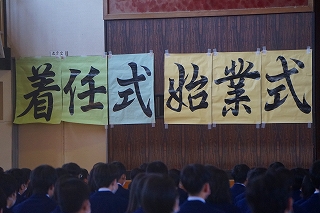 着任式 始業式